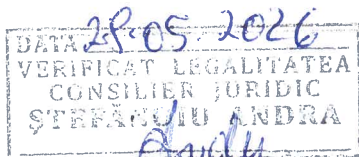 DATA 28.05.2026
VERIFICAT LEGALITATEA
CONSILIER JURIDIC
ȘTEFĂNOIU ANDRA